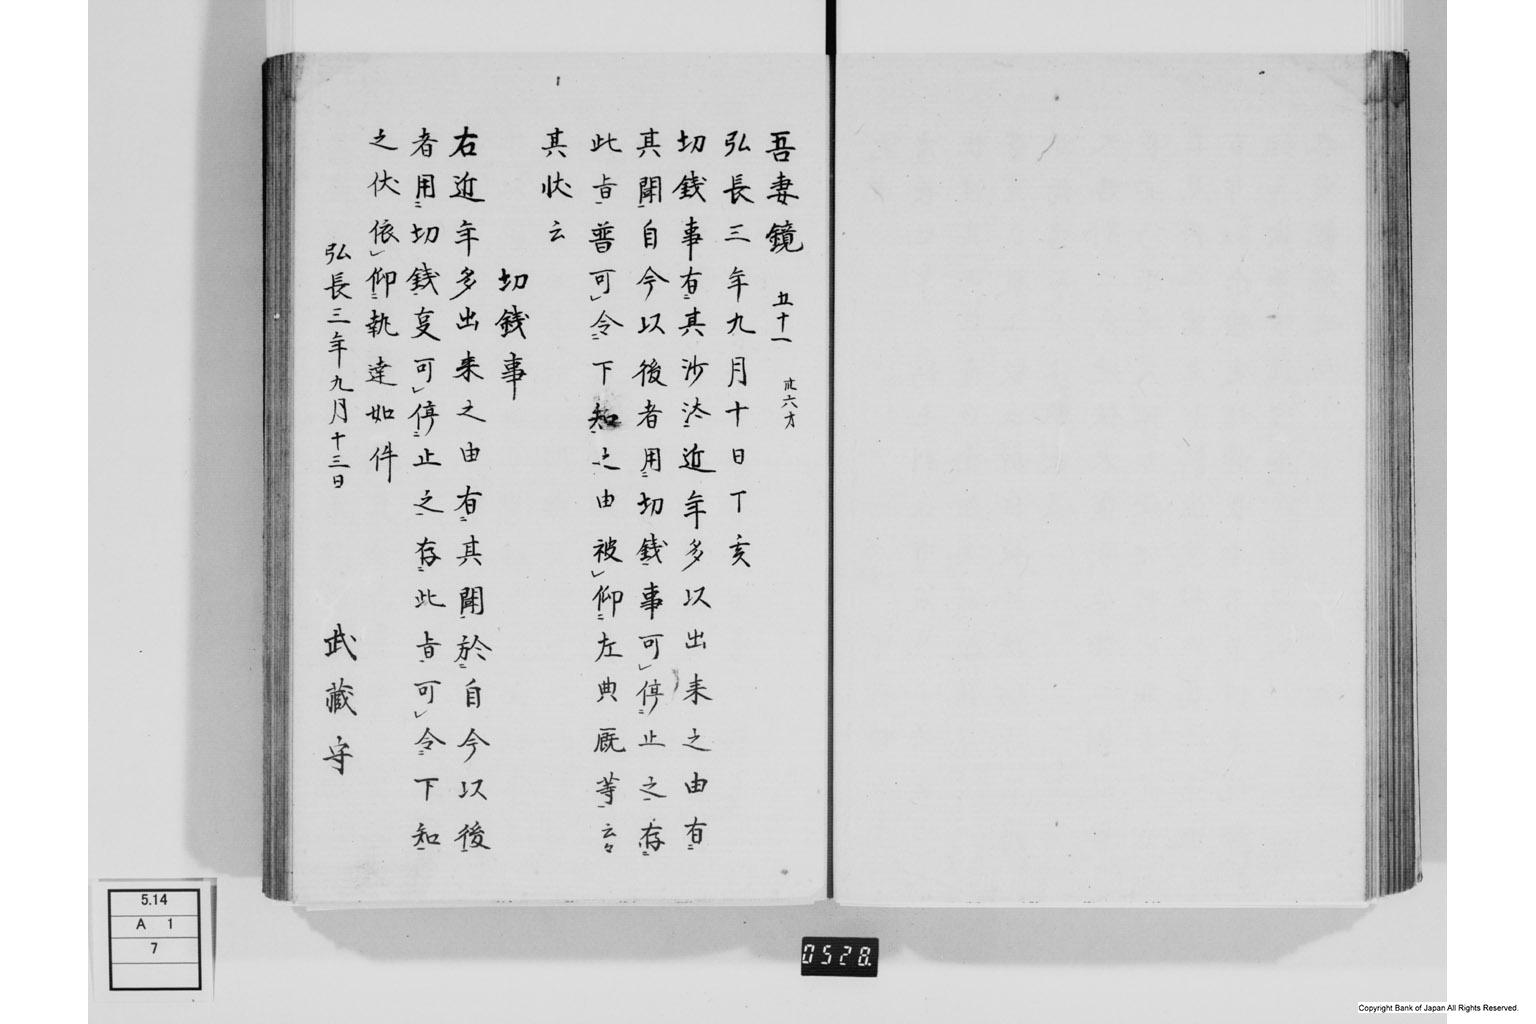 吾妻鏡 五十一
弘長三年九月十日丁亥
切錢事有其沙汰近年多以出来之由有
其聞自今以後者用切錢事可停止之存
此旨普可令下知之由被仰左典厩等云々
其状云
切錢事
右近年多出来之由有其聞於自今以後
者用切錢叓可停止之存此旨可令下知
之状依仰執達如件
弘長三年九月十三日
武藏守
5.14
A 1
7
0528.
Copyright Bank of Japan All Rights Reserved.